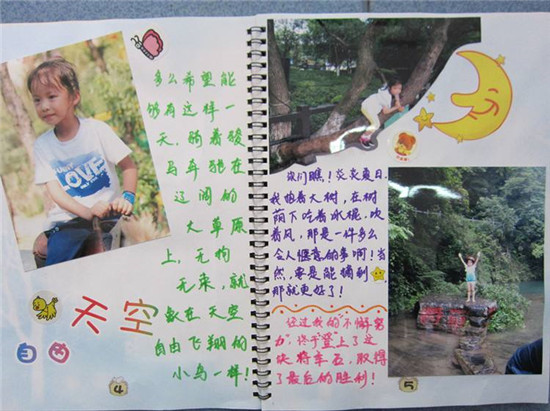 LOVE
多么希望能
够有这样一
天，骑着骏
马奔驰在
辽阔的
大草原
上，无拘
无束，就
象在天空
自由飞翔的
小鸟一样！
天空
自由
4
你们瞧！炎炎夏日，
我抱着大树，在树
荫下吃着冰棍，吹
着风，那是一件多么
令人惬意的事啊！当
然，要是能摘到
那就更好了！
经过我的“不懈努
力”，终于登上了这
块将军石，取得
了最后的胜利！
5